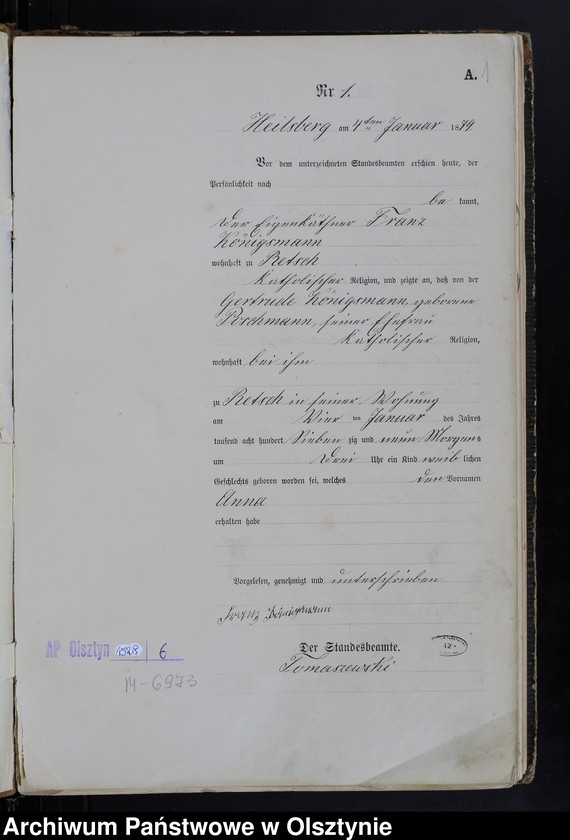 A. 1
Nr 1.
Heilsberg am 4ten Januar 1879
Vor dem unterzeichneten Standesbeamten erschien heute, der
Persönlichkeit nach
be kannt,
der Eigenkäthner Franz
Königsmann
wohnhaft zu Retsch
katholischer Religion, und zeigte an, daß von der
Gertrude Königsmann, geborene
Poschmann, seiner Ehefrau
katholischer Religion,
wohnhaft bei ihm
zu Retsch in seiner Wohnung
am Vier ten Januar des Jahres
tausend acht hundert Sieben zig und neun Morgens
um Drei Uhr ein Kind weib lichen
Geschlechts geboren worden sei, welches den Vornamen
Anna
erhalten habe
Vorgelesen, genehmigt und unterschrieben
Franz Königsmann
Der Standesbeamte.
Tomaszewski
AP Olsztyn 1528 6
14-6973
Archiwum Państwowe w Olsztynie